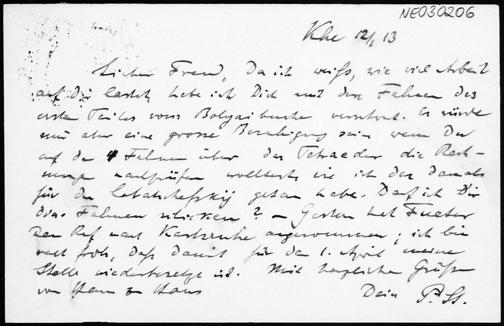 NE030206
Khe 12/1 13
Lieber Freund, Da ich weiß, wie viel Arbeit
auf Dir lastet, habe ich Dich mit den Fahnen des
ersten Teiles vom Bolyaibuche verschont. Es würde
mir aber eine grosse Beruhigung sein wenn Du
auf den 4 Fahnen über das Tetraeder die Rech-
nungen nachprüfen wolltest wie ich das damals
für den Lobatschefskij getan habe. Darf ich Dir
diese Fahnen schicken? – Gestern hat Fueter
den Ruf nach Karlsruhe angenommen; ich bin
recht froh, daß damit für den 1. April meine
Stelle wiederbesetzt ist. Mit herzlichen Grüßen
von Haus zu Haus
Dein P. St.